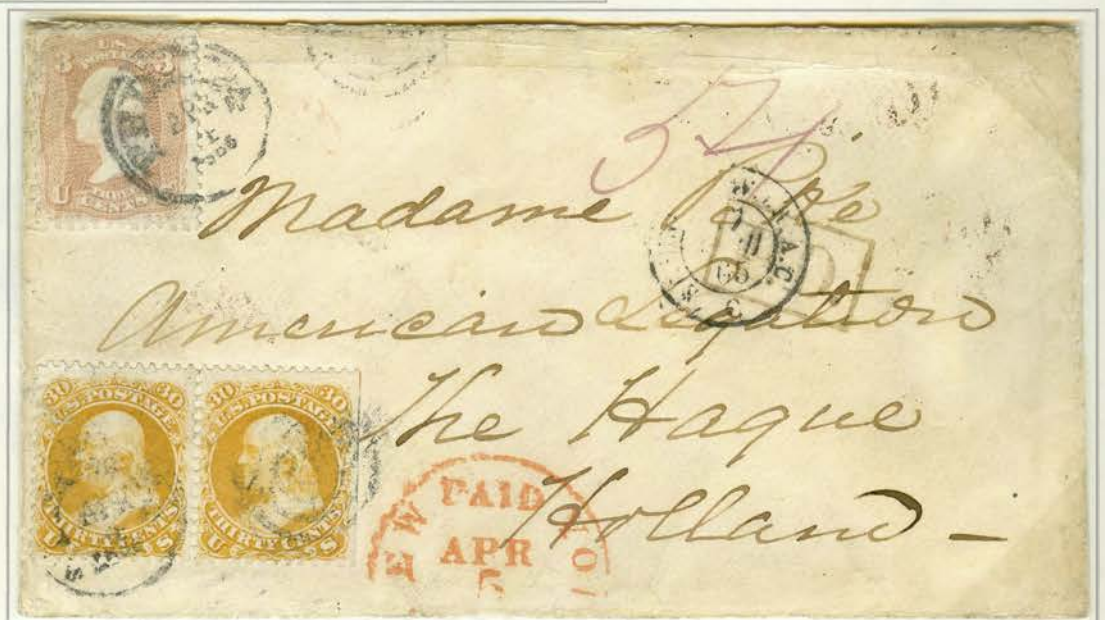 3 3
U
CENTS
57
Madame
W.F.A.C.
American Legation
The Hague
Holland —
30 30
U.S. POSTAGE
THIRTY CENTS
U S
30 30
U.S. POSTAGE
THIRTY CENTS
U S
PAID
APR
5